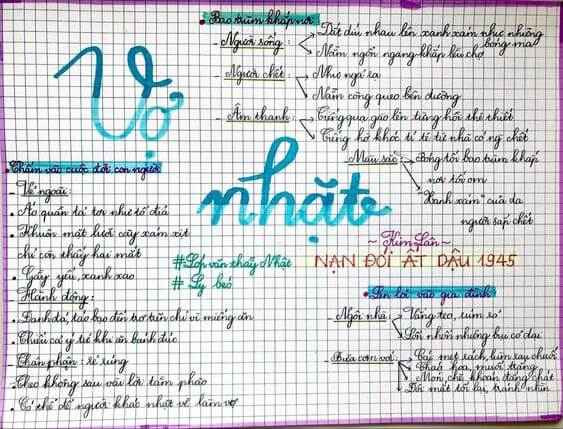 Bao trùm khắp nơi
- Người sống:
Dắt díu nhau lên xanh xám như những bóng ma
Nằm ngổn ngang khắp lều chợ
- Người chết:
Như ngả rạ
Nằm còng queo bên đường
- Âm thanh:
Tiếng quạ gào lên từng hồi thê thiết
Tiếng hờ khóc tỉ tê từ nhà có người chết
- Màu sắc:
Bóng tối bao trùm khắp
nơi tối om
"Xanh xám" của da
người sắp chết
Vợ
nhặt
~ Kim Lân ~
NẠN ĐÓI ẤT DẬU 1945
#Lớp văn thầy Nhật
# Ly béo
Thấm vào cuộc đời con người
- Vẻ ngoài:
Áo quần tả tơi như tổ đỉa
Khuôn mặt lưỡi cày xám xịt
chỉ còn thấy hai mắt
Gầy yếu, xanh xao
- Hành động:
Đanh đá, táo bạo đến trơ trẽn chỉ vì miếng ăn
Thiếu cả ý tứ khi ăn bánh đúc
- Thân phận: rẻ rúng
Theo không sau vài lời tầm phào
Có thể để người khác nhặt về làm vợ
Len lỏi vào gia đình
- Ngôi nhà:
Vắng teo, rúm ró
Lổn nhổn những bụi cỏ dại
- Bữa cơm
Cái mẹt rách, lùm rau chuối
Cháo loãng, muối trắng
Món chè khoán đắng chát
tối lại, tránh nhìn